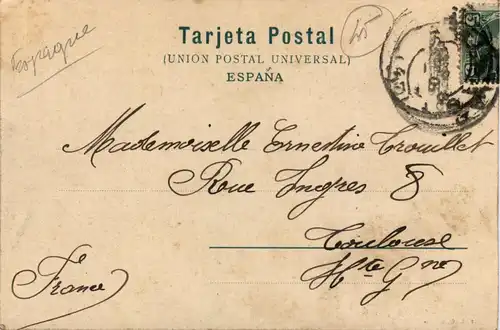 Espagne
25
Tarjeta Postal
(UNIÓN POSTAL UNIVERSAL)
ESPAÑA
Mademoiselle Ernestine Trouillet
Rue Ingres 8
Toulouse
Hte Gne
France